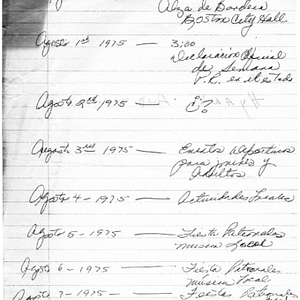 Alza de Bandera
Boston City Hall
Agosto 1st 1975 — 3:00
declaracion oficial
de Semana
P.R. en el estado
Agosto 2nd 1975 — ¿?
Agosto 3rd 1975 — Eventos deportivos
para niños y
Adultos
Agosto 4 - 1975 — Actividades Locales
Agosto 5 - 1975 — Fiesta Patronales
musica Local
Agosto 6 - 1975 — Fiesta Patronales
musica Local
Agosto 7 - 1975 — Fiesta Patronales